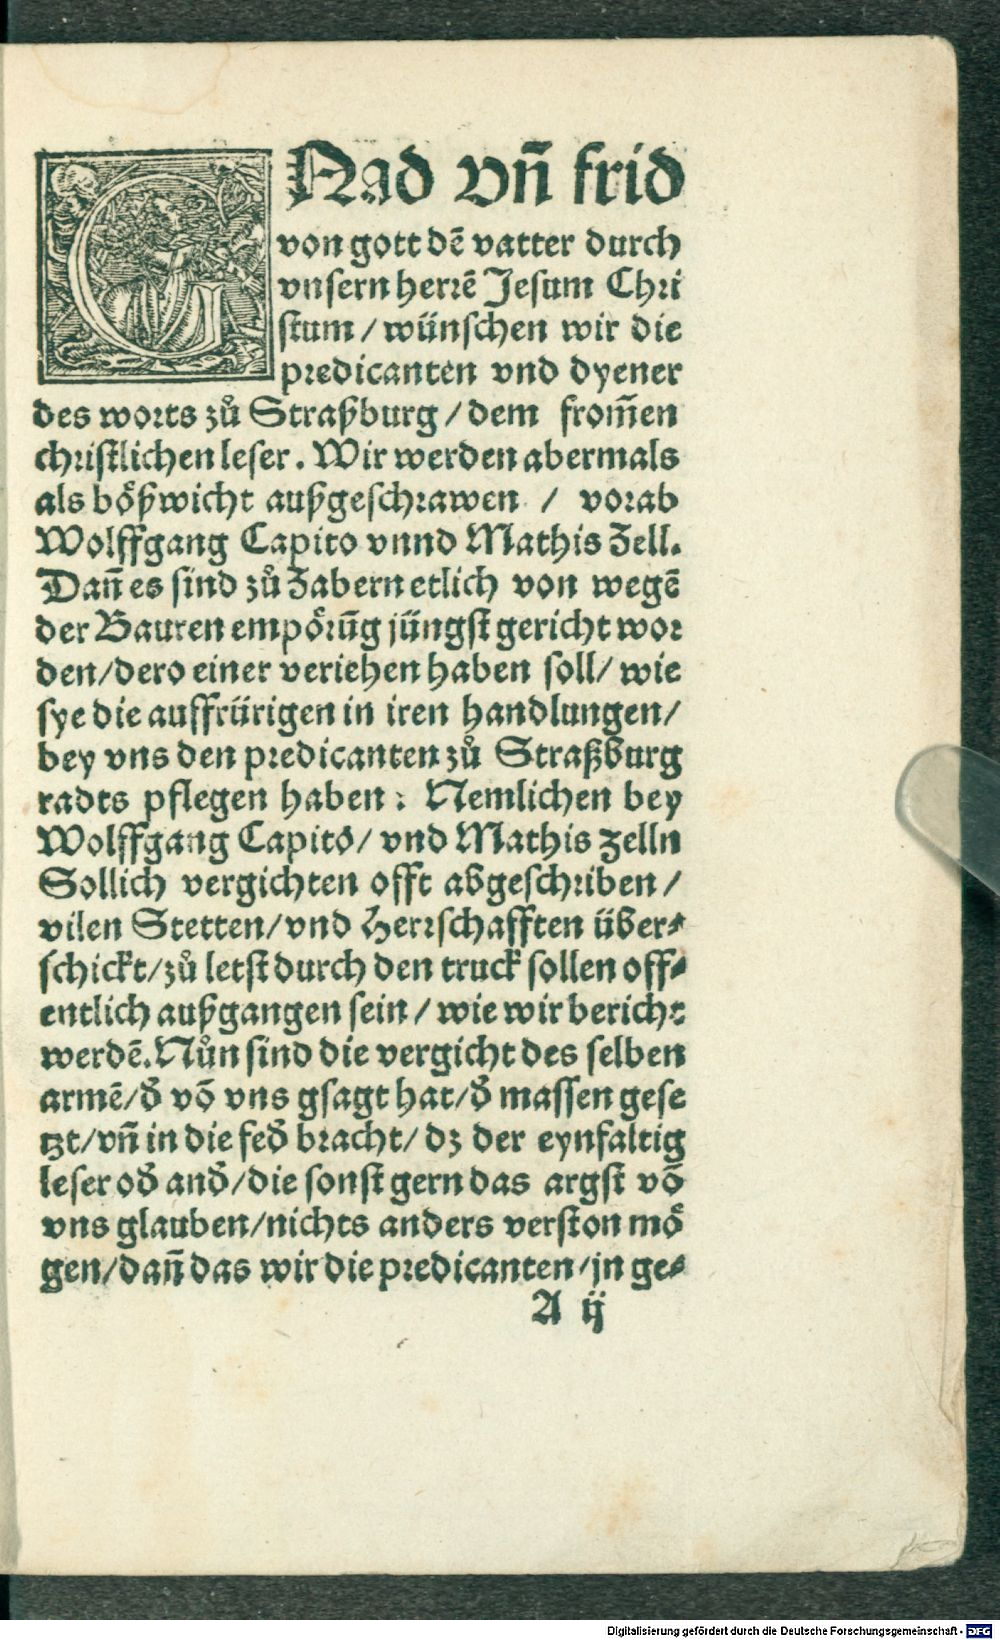 GNad vn̄ frid
von gott dē vatter durch
vnsern herrē Jesum Chri
stum / wünschen wir die
predicanten vnd dyener
des worts zů Straßburg / dem from̄en
christlichen leser. Wir werden abermals
als bößwicht außgeschrawen / vorab
Wolffgang Capito vnnd Mathis Zell.
Dan̄ es sind zů Zabern etlich von wegē
der Bauren empörūg jüngst gericht wor
den / dero einer veriehen haben soll / wie
sye die auffrürigen in iren handlungen /
bey vns den predicanten zů Straßburg
radts pflegen haben : Nemlichen bey
Wolffgang Capito / vnd Mathis zelln
Sollich vergichten offt abgeschriben /
vilen Stetten / vnd Herrschafften über⸗
schickt / zů letst durch den truck sollen off⸗
entlich außgangen sein / wie wir bericht
werdē. Nůn sind die vergicht des selben
armē / đ vō vns gsagt hat / đ massen gese
tzt / vn̄ in die feđ bracht / dz der eynfaltig
leser ođ anđ / die sonst gern das argst vō
vns glauben / nichts anders verston mö
gen / dan̄ das wir die predicanten / jn ge⸗
A ij
Digitalisierung gefördert durch die Deutsche Forschungsgemeinschaft - DFG